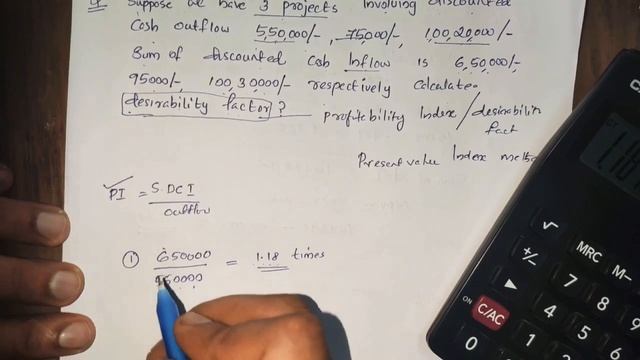 Q Suppose we have 3 projects involving discounted
cash outflow 5,50,000/-, 75000/-, 1,00,20000/-
Sum of discounted cash inflow is 6,50,000/-
95000/-, 100,30000/- respectively calculate.
desirability factor? profitability Index/desirabilit
fact
Present value Index meth
PI = S.DCI
outflow
① 650000 = 1.18 times
50000
√
MRC
M-
+/-
▶
7
8
C/AC
4
5
0
1
2